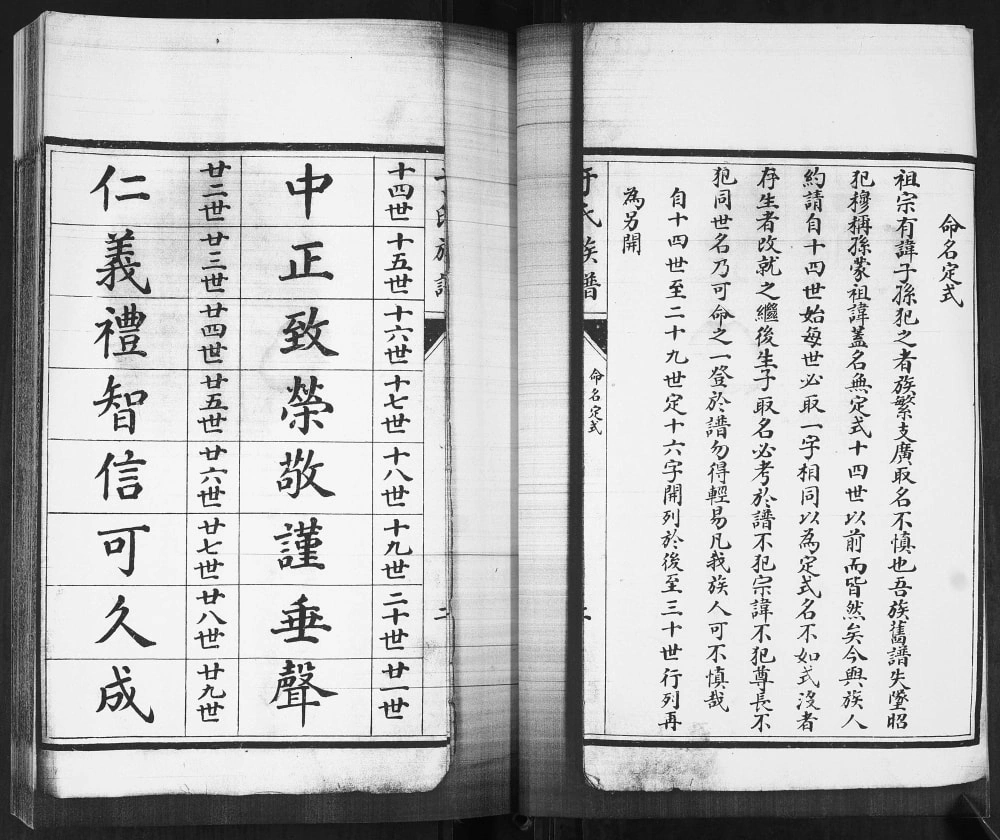 命名定式
祖宗有諱子孫犯之者族繁支廣取名不慎也吾族舊譜失墜昭
犯穆稱孫蒙祖諱蓋名無定式十四世以前而皆然矣今與族人
約請自十四世始每世必取一字相同以為定式名不如式沒者
存生者改就之繼後生子取名必考於譜不犯宗諱不犯尊長不
犯同世名乃可命之一登於譜勿得輕易凡我族人可不慎哉
自十四世至二十九世定十六字開列於後至三十世行列再
為另開
氏族譜
命名定式
十四世 十五世 十六世 十七世 十八世 十九世 二十世 廿一世
中 正 致 榮 敬 謹 垂 聲
廿二世 廿三世 廿四世 廿五世 廿六世 廿七世 廿八世 廿九世
仁 義 禮 智 信 可 久 成